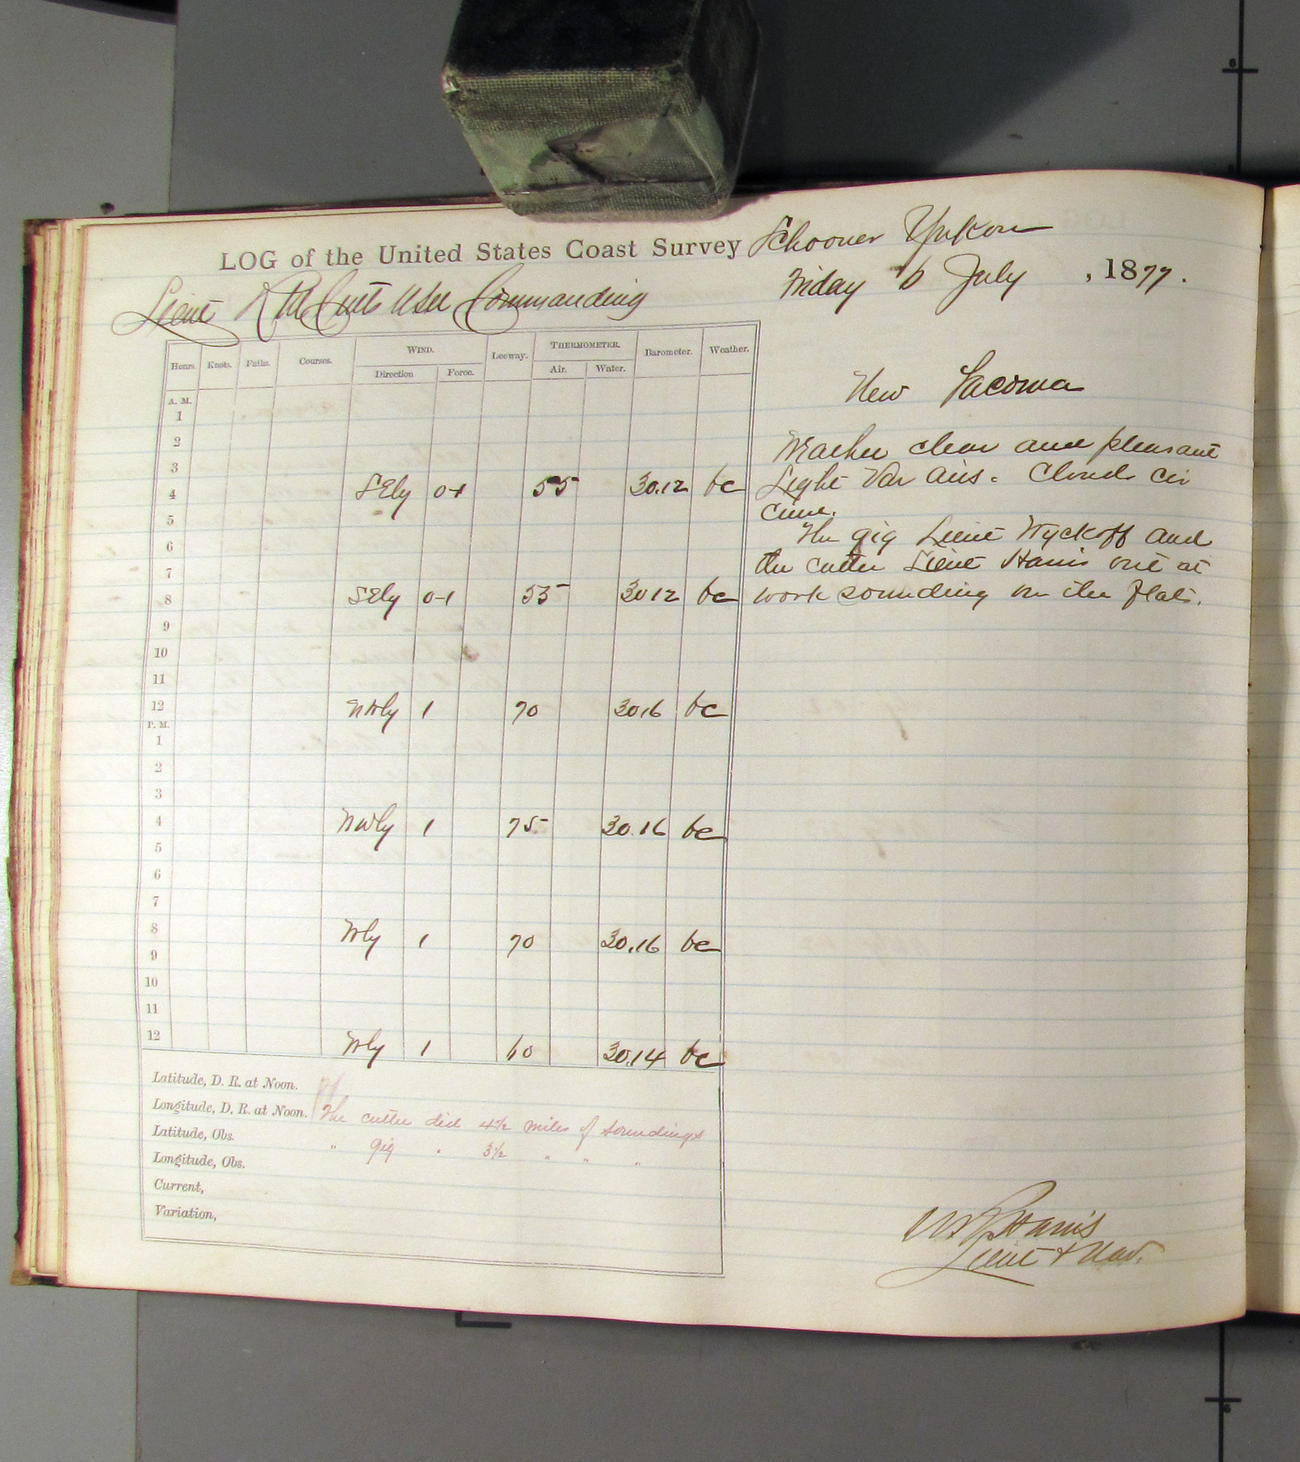 LOG of the United States Coast Survey Schooner Yukon
Friday 6 July, 1877.
Lieut R M Cutts USN Commanding
Hours. Knots. Faths. Courses. WIND. Leeway. THERMOMETER. Barometer. Weather.
Direction Force. Air. Water.
A. M.
1
2
3
4 SEly 0-1 55 30.12 bc
5
6
7
8 SEly 0-1 55 30 12 bc
9
10
11
12 NWly 1 70 30.16 bc
P. M.
1
2
3
4 NWly 1 75 30.16 bc
5
6
7
8 Wly 1 70 30.16 bc
9
10
11
12 Wly 1 60 30.14 bc
Latitude, D. R. at Noon.
Longitude, D. R. at Noon. The cutter did 4½ miles of soundings
Latitude, Obs. " gig " 3½ " " "
Longitude, Obs.
Current,
Variation,
New Tacoma
Weather clear and pleasant
Light Var airs. Clouds cir
cum.
The gig Lieut Wyckoff and
the cutter Lieut Harris out at
work sounding on the flats.
Harris
Lieut & Nav.